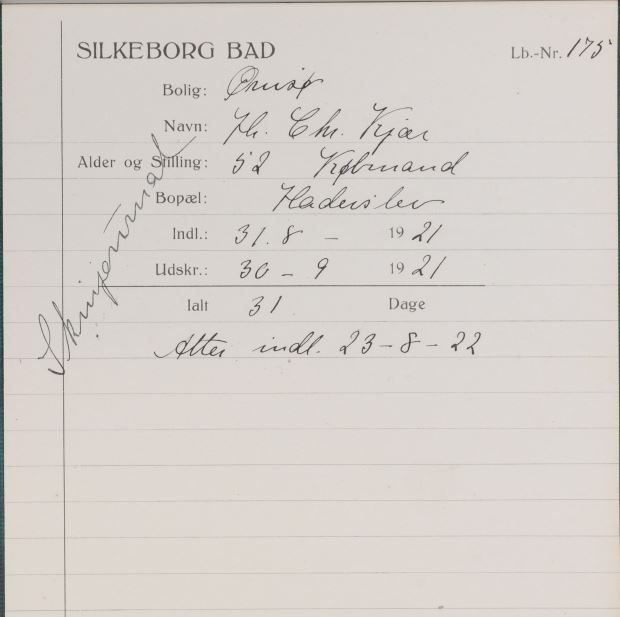 SILKEBORG BAD Lb.-Nr. 175
Bolig: Ørnsø
Navn: Th. Chr. Kjær
Alder og Stilling: 52 Købmand
Bopæl: Haderslev
Indl.: 31. 8 - 19 21
Udskr.: 30 - 9 19 21
Ialt 31 Dage
Atter indl. 23 - 8 - 22